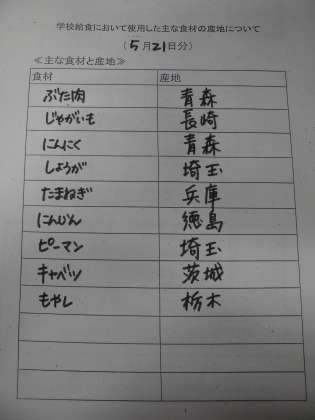 学校給食において使用した主な食材の産地について
(5月21日分)
≪主な食材と産地≫
食材 産地
ぶた肉 青森
じゃがいも 長崎
にんにく 青森
しょうが 埼玉
たまねぎ 兵庫
にんじん 徳島
ピーマン 埼玉
キャベツ 茨城
もやし 栃木